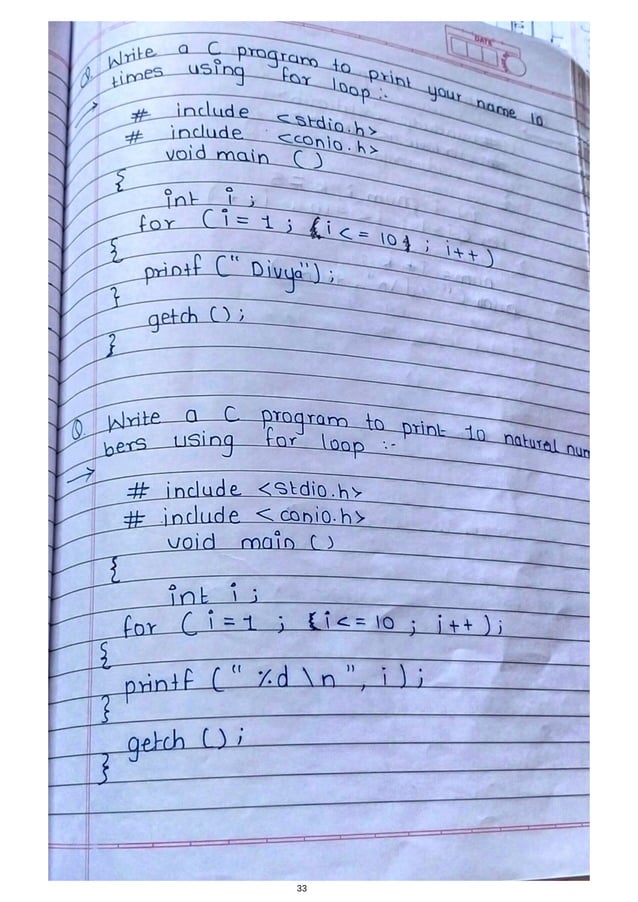 DATE
Q. Write a C program to print your name 10
times using for loop :-
→
# include <stdio.h>
# include <conio.h>
void main ()
{
int i ;
for ( i = 1 ; { i <= 10 } ; i++ )
{
printf (" Divya") ;
}
getch () ;
}
Q Write a C program to print 10 natural num
bers using for loop :-
→
# include <stdio.h>
# include < conio.h>
void main ()
{
int i ;
for ( i = 1 ; { i <= 10 ; i++ ) ;
{
printf (" %d \n ", i ) ;
}
getch () ;
}
33